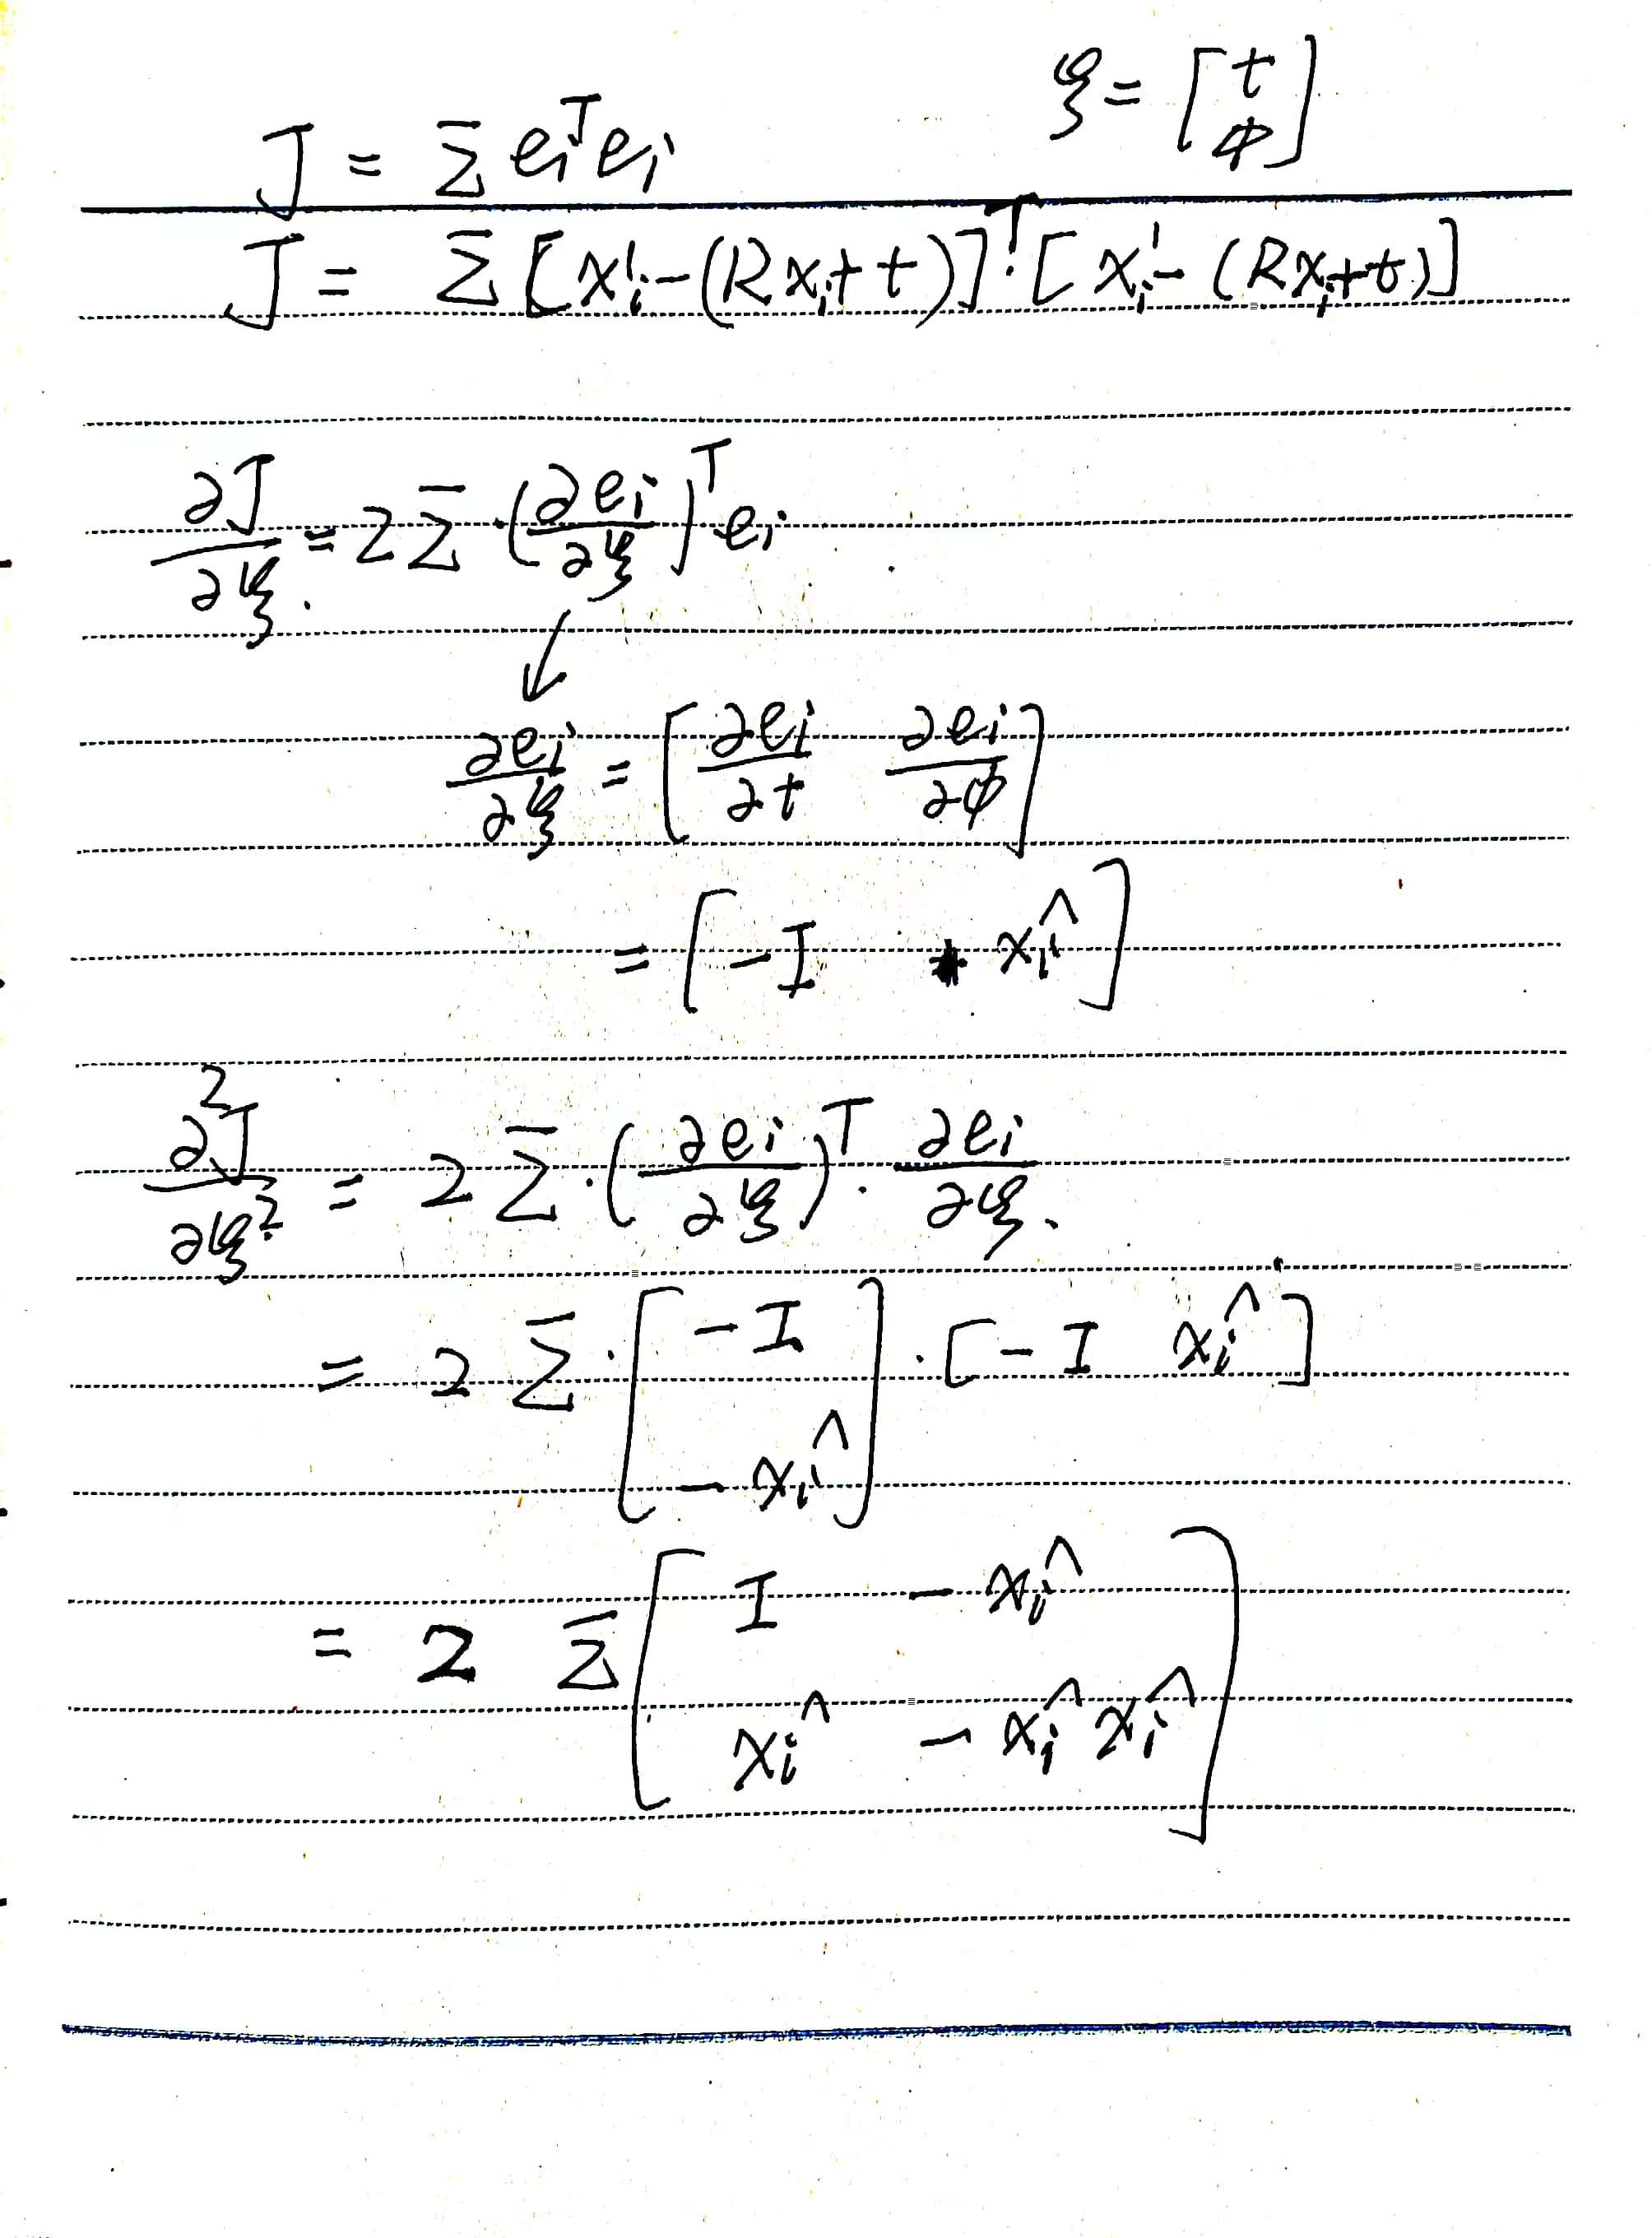 ξ = [t ϕ]
J = Σ eᵢᵀ eᵢ
J = Σ [xᵢ' - (Rxᵢ + t)]ᵀ · [xᵢ' - (Rxᵢ + t)]
∂J/∂ξ = 2 Σ · (∂eᵢ/∂ξ)ᵀ eᵢ
↓
∂eᵢ/∂ξ = [∂eᵢ/∂t ∂eᵢ/∂ϕ]
= [-I xᵢ^]
∂²J/∂ξ² = 2 Σ · (∂eᵢ/∂ξ)ᵀ · ∂eᵢ/∂ξ
= 2 Σ · [-I ; -xᵢ^] · [-I xᵢ^]
= 2 Σ [I -xᵢ^ ; xᵢ^ -xᵢ^ xᵢ^]